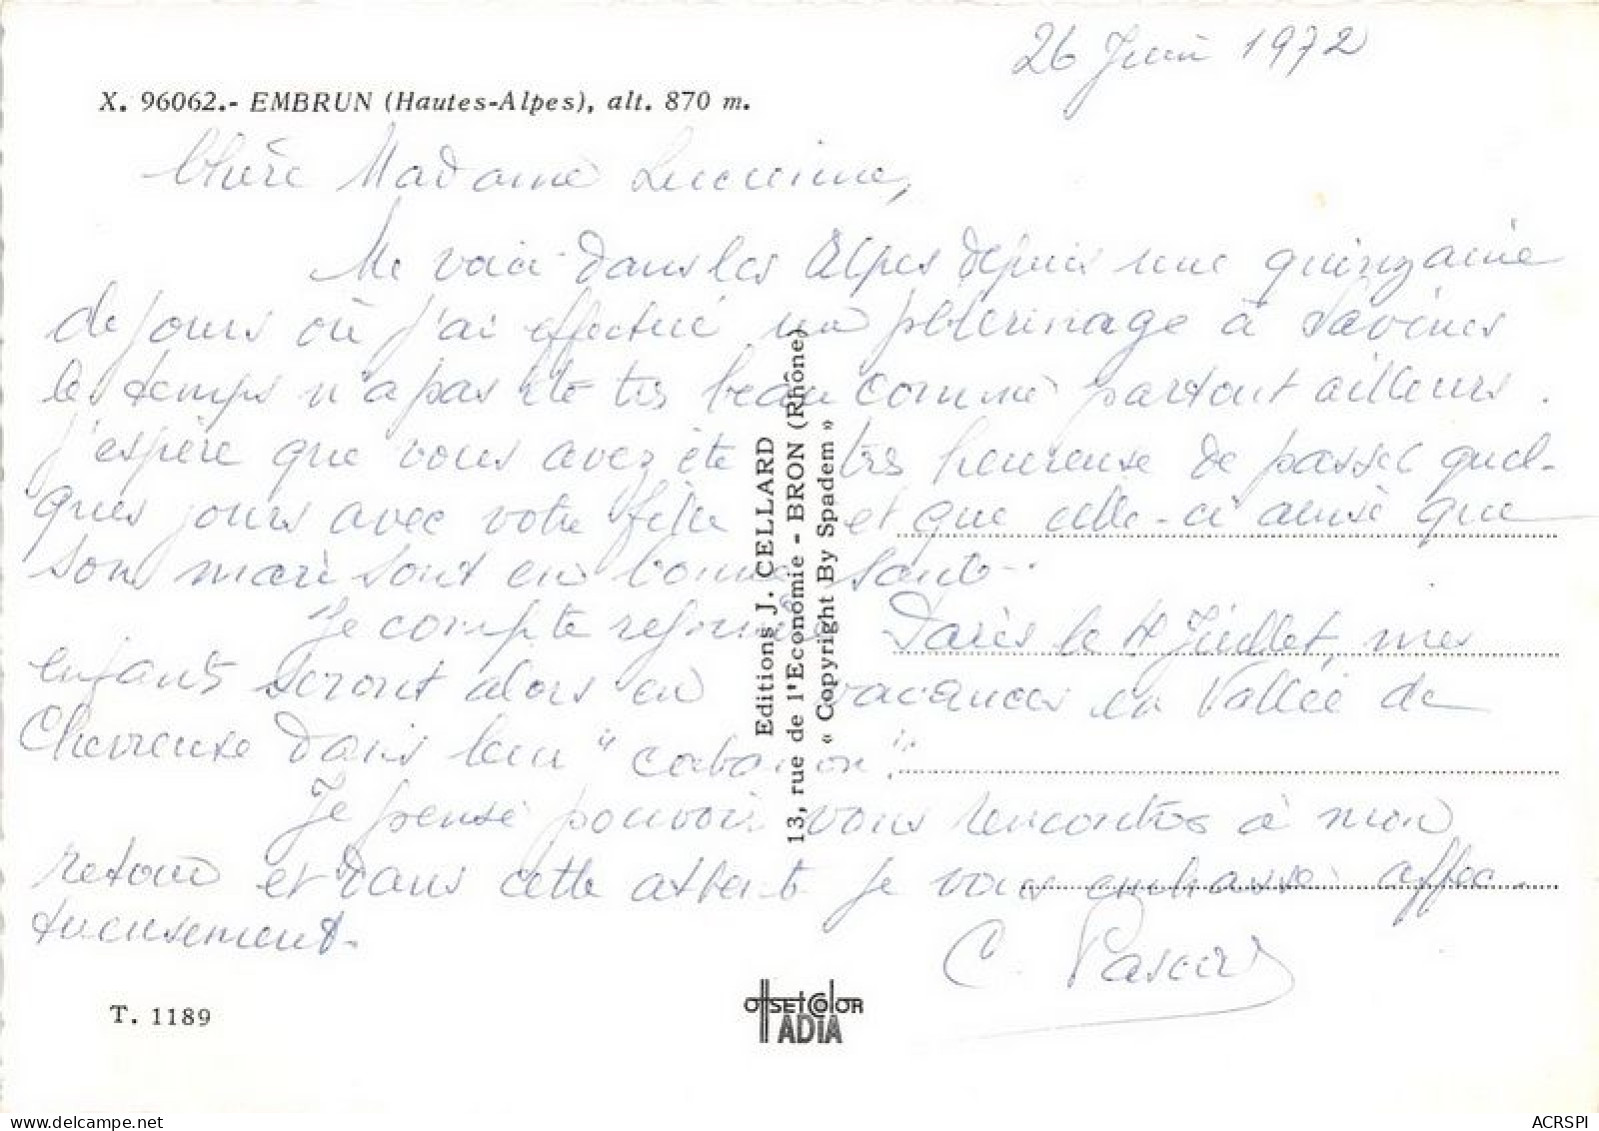 26 Juin 1972
X. 96062.- EMBRUN (Hautes-Alpes), alt. 870 m.
Chère Madame
Me voici dans les Alpes depuis une quinzaine
de jours où j'ai effectué un pèlerinage à Savines
le temps n'a pas été très beau comme partout ailleurs.
J'espère que vous avez été très heureuse de passer quel-
ques jours avec votre fille et que celle-ci ainsi que
son mari sont en bonne santé.
Je compte rejoindre Paris le 4 Juillet, mes
enfants seront alors en vacances en Vallée de
Chevreuse dans leur "cabanon".
Je pense pouvoir vous rencontrer à mon
retour et dans cette attente je vous embrasse affec-
tueusement.
C.
Editions J. CELLARD
13, rue de l'Economie - BRON (Rhône)
« Copyright By Spadem »
T. 1189
OFFSET COLOR
ADIA
delcampe.net
ACRSPI